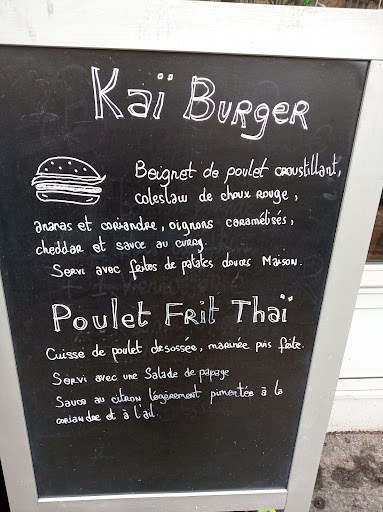 Kaï Burger
Beignet de poulet croustillant,
coleslaw de choux rouge,
ananas et coriandre, oignons caramélisés,
cheddar et sauce au curry.
Servi avec frites de patates douces Maison.
Poulet Frit Thaï
Cuisse de poulet désossée, marinée puis frite.
Servi avec une Salade de papaye
Sauce au citron légèrement pimentée à la
coriandre et à l'ail.